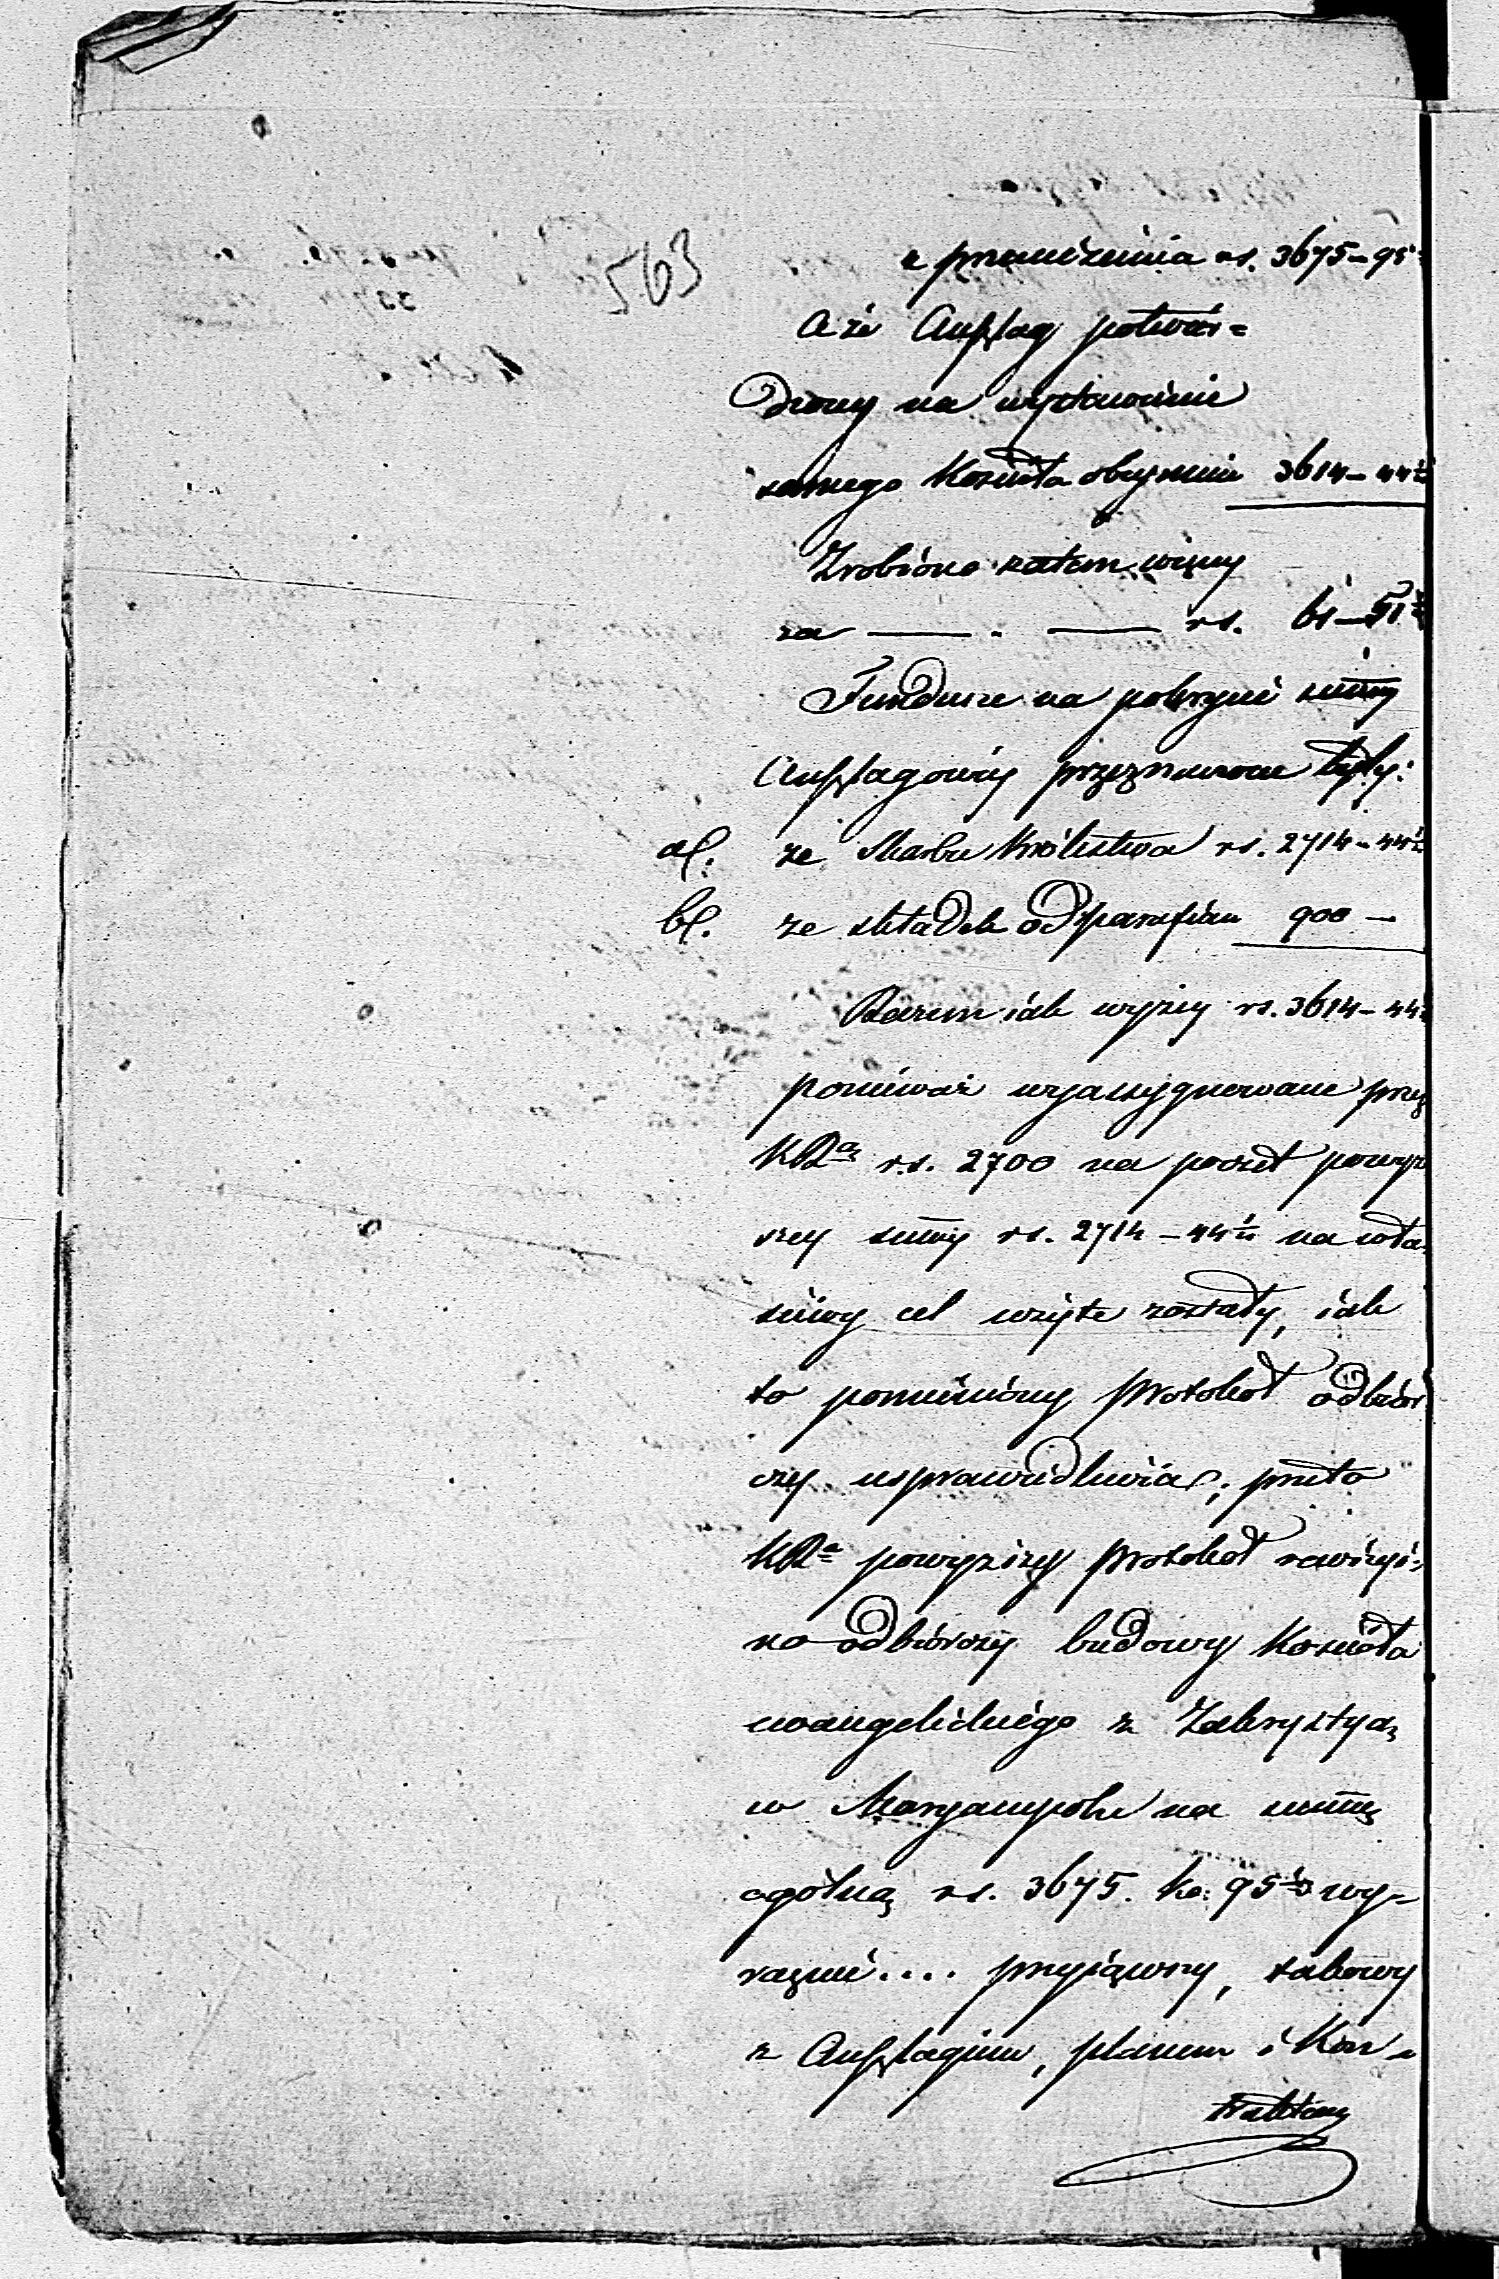 563
z przeniesienia rs. 3675 – 95
A że Anszlag potwier=
dzony na wystawienie
samego Kościoła obejmuie 3614 – 44½
Zrobiono zatem więcey
za — . — rs. 61 – 51½
Fundusze na pokrycie summy
Anszlagowéy przeznaczone były:
a/. ze Skarbu Królestwa rs. 2714 – 44½
b/. ze składek od parafian 900 –
Razem iak wyżey rs. 3614 – 44½
ponieważ wyassygnowane przez
KRą rs. 2700 na poczet powyż
szey sumy rs. 2714 – 44½ na wła
ściwy cel użyte zostały, iak
to pomieniony protokół odbior
czy usprawiedliwia; przeto
KRa powyższy protokół rewizyi=
no odbiorczy budowy Kościoła
ewangelickiego z Zakrystyą
w Maryampolu na summę
ogólną rs. 3675. ko: 95½ wy=
raźnie .... przyiąwszy, takowy
z Anszlagiem, planem i Kon=
traktem